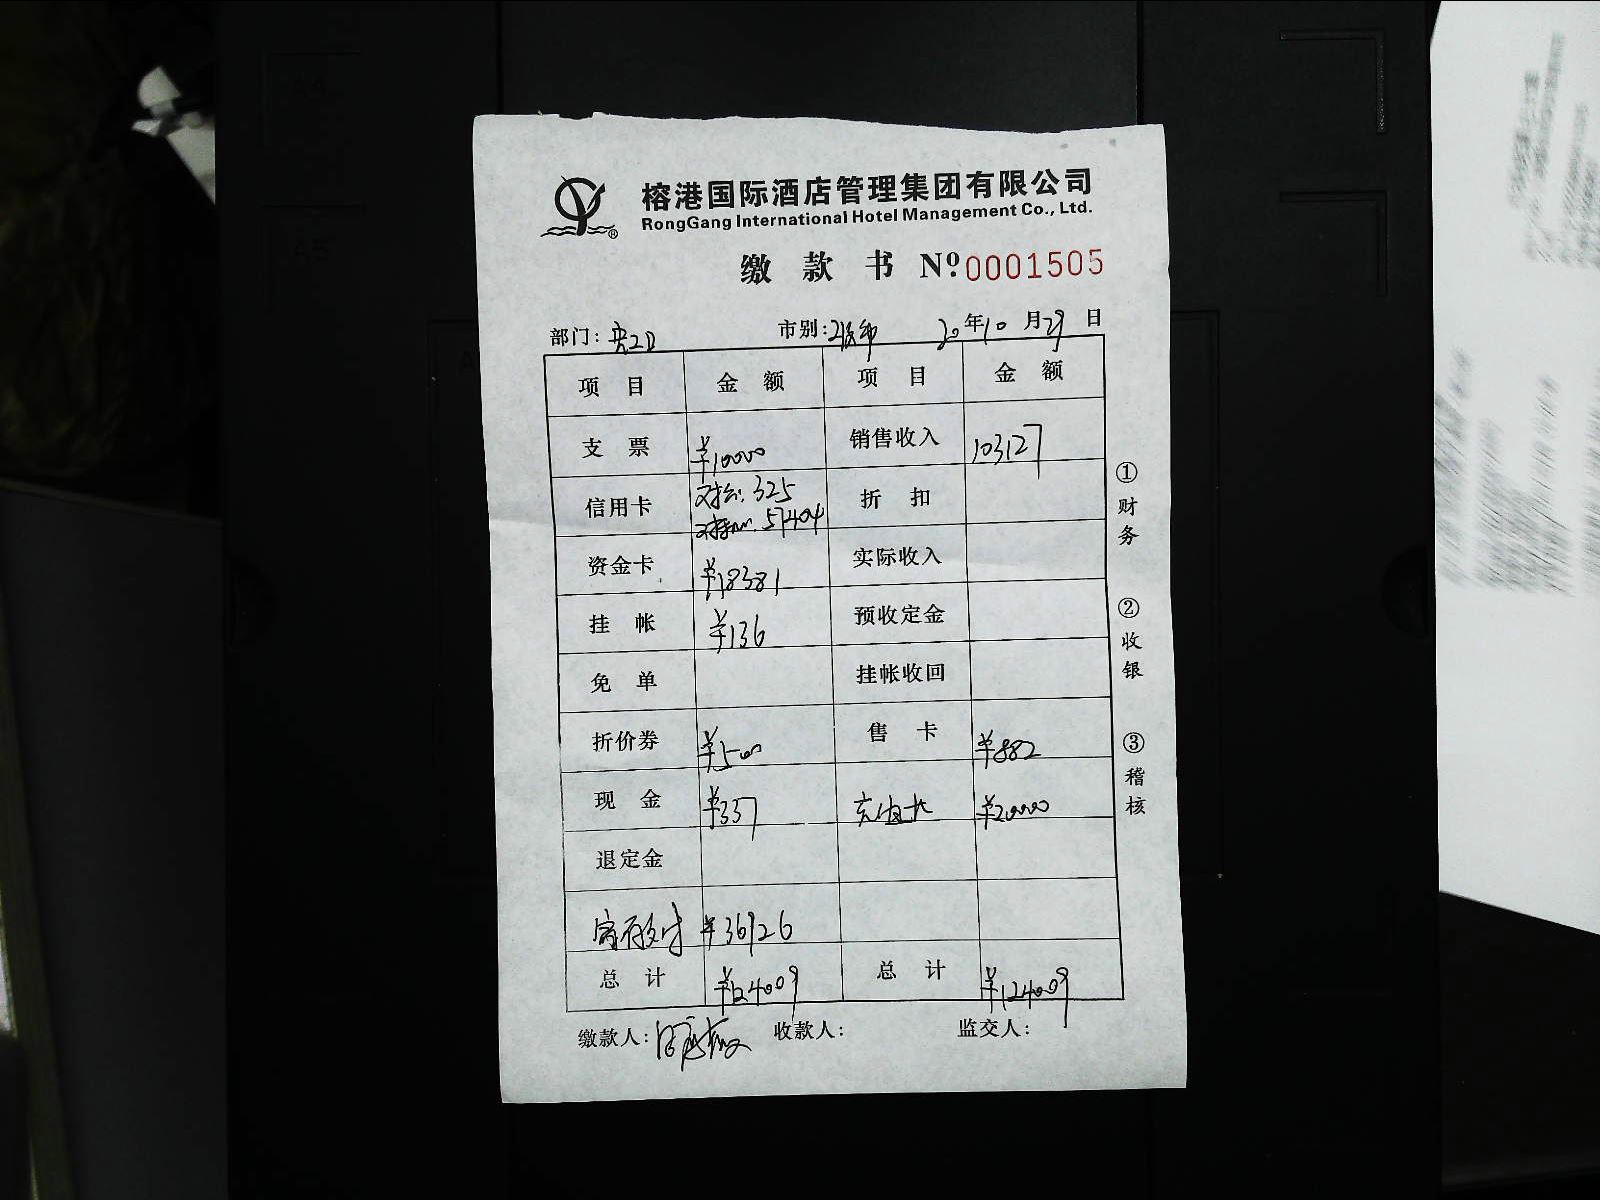 榕港国际酒店管理集团有限公司
RongGang International Hotel Management Co., Ltd.
®
缴 款 书 Nº 0001505
部门: 市别: 20年10月29日
项 目 金 额 项 目 金 额
支 票 ¥10000 销售收入 103127
信用卡 325 折 扣
57404
资金卡 ¥18381 实际收入
挂 帐 ¥136 预收定金
免 单 挂帐收回
折价券 ¥500 售 卡 ¥882
现 金 ¥337 充值卡 ¥20000
退定金
寄存支付 ¥36926
总 计 ¥124009 总 计 ¥124009
缴款人: 收款人: 监交人:
①财务
②收银
③稽核
A4
A5